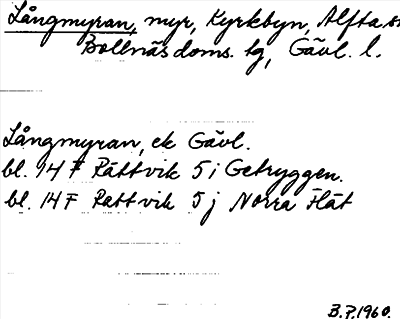 Långmyran, myr, Kyrkbyn, Alfta sn
Bollnäs doms. tg, Gävl. l.
Långmyran, ek Gävl.
bl. 14 F Rättvik 5 i Getryggen.
bl. 14 F Rättvik 5 j Norra Flät
B.P. 1960.